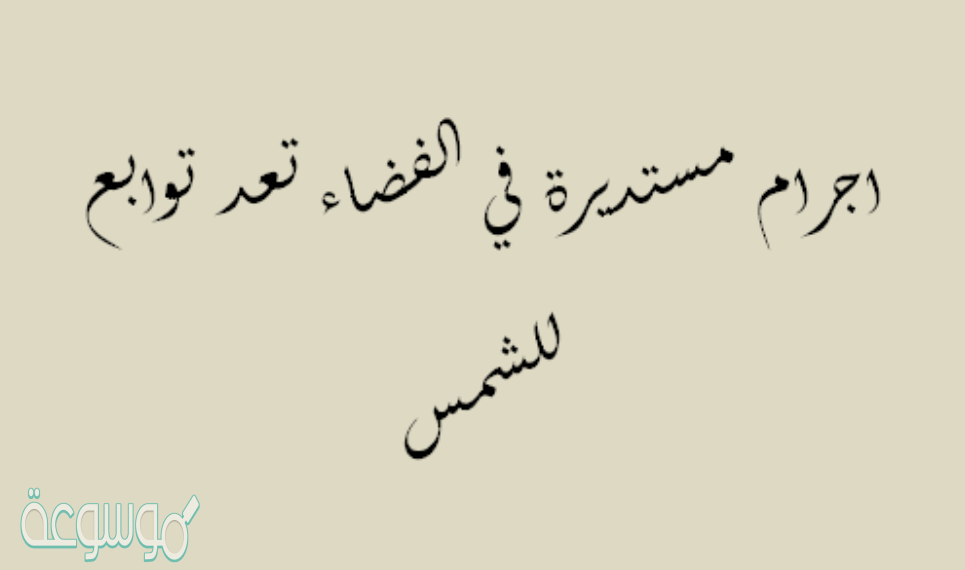 اجرام مستديرة في الفضاء تعد توابع
للشمس
موسوعة